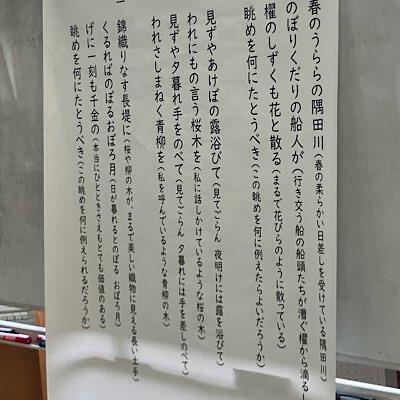 春のうららの隅田川(春の柔らかい日差しを受けている隅田川)
のぼりくだりの船人が(行き交う船の船頭たちが漕ぐ櫂から滴る
櫂のしずくも花と散る(まるで花びらのように散っている)
眺めを何にたとうべき(この眺めを何に例えたらよいだろうか)
見ずやあけぼの露浴びて(見てごらん 夜明けには露を浴びて)
われにもの言う桜木を(私に話しかけているような桜の木)
見ずや夕暮れ手をのべて(見てごらん 夕暮れには手を差しのべて)
われさしまねく青柳を(私を呼んでいるような青柳の木)
錦織りなす長堤に(桜や柳の木が、まるで美しい織物に見える長い土手)
くるればのぼるおぼろ月(日が暮れるとのぼる おぼろ月)
げに一刻も千金の(本当にひとときさえもとても価値のある)
眺めを何にたとうべき(この眺めを何に例えられるだろうか)